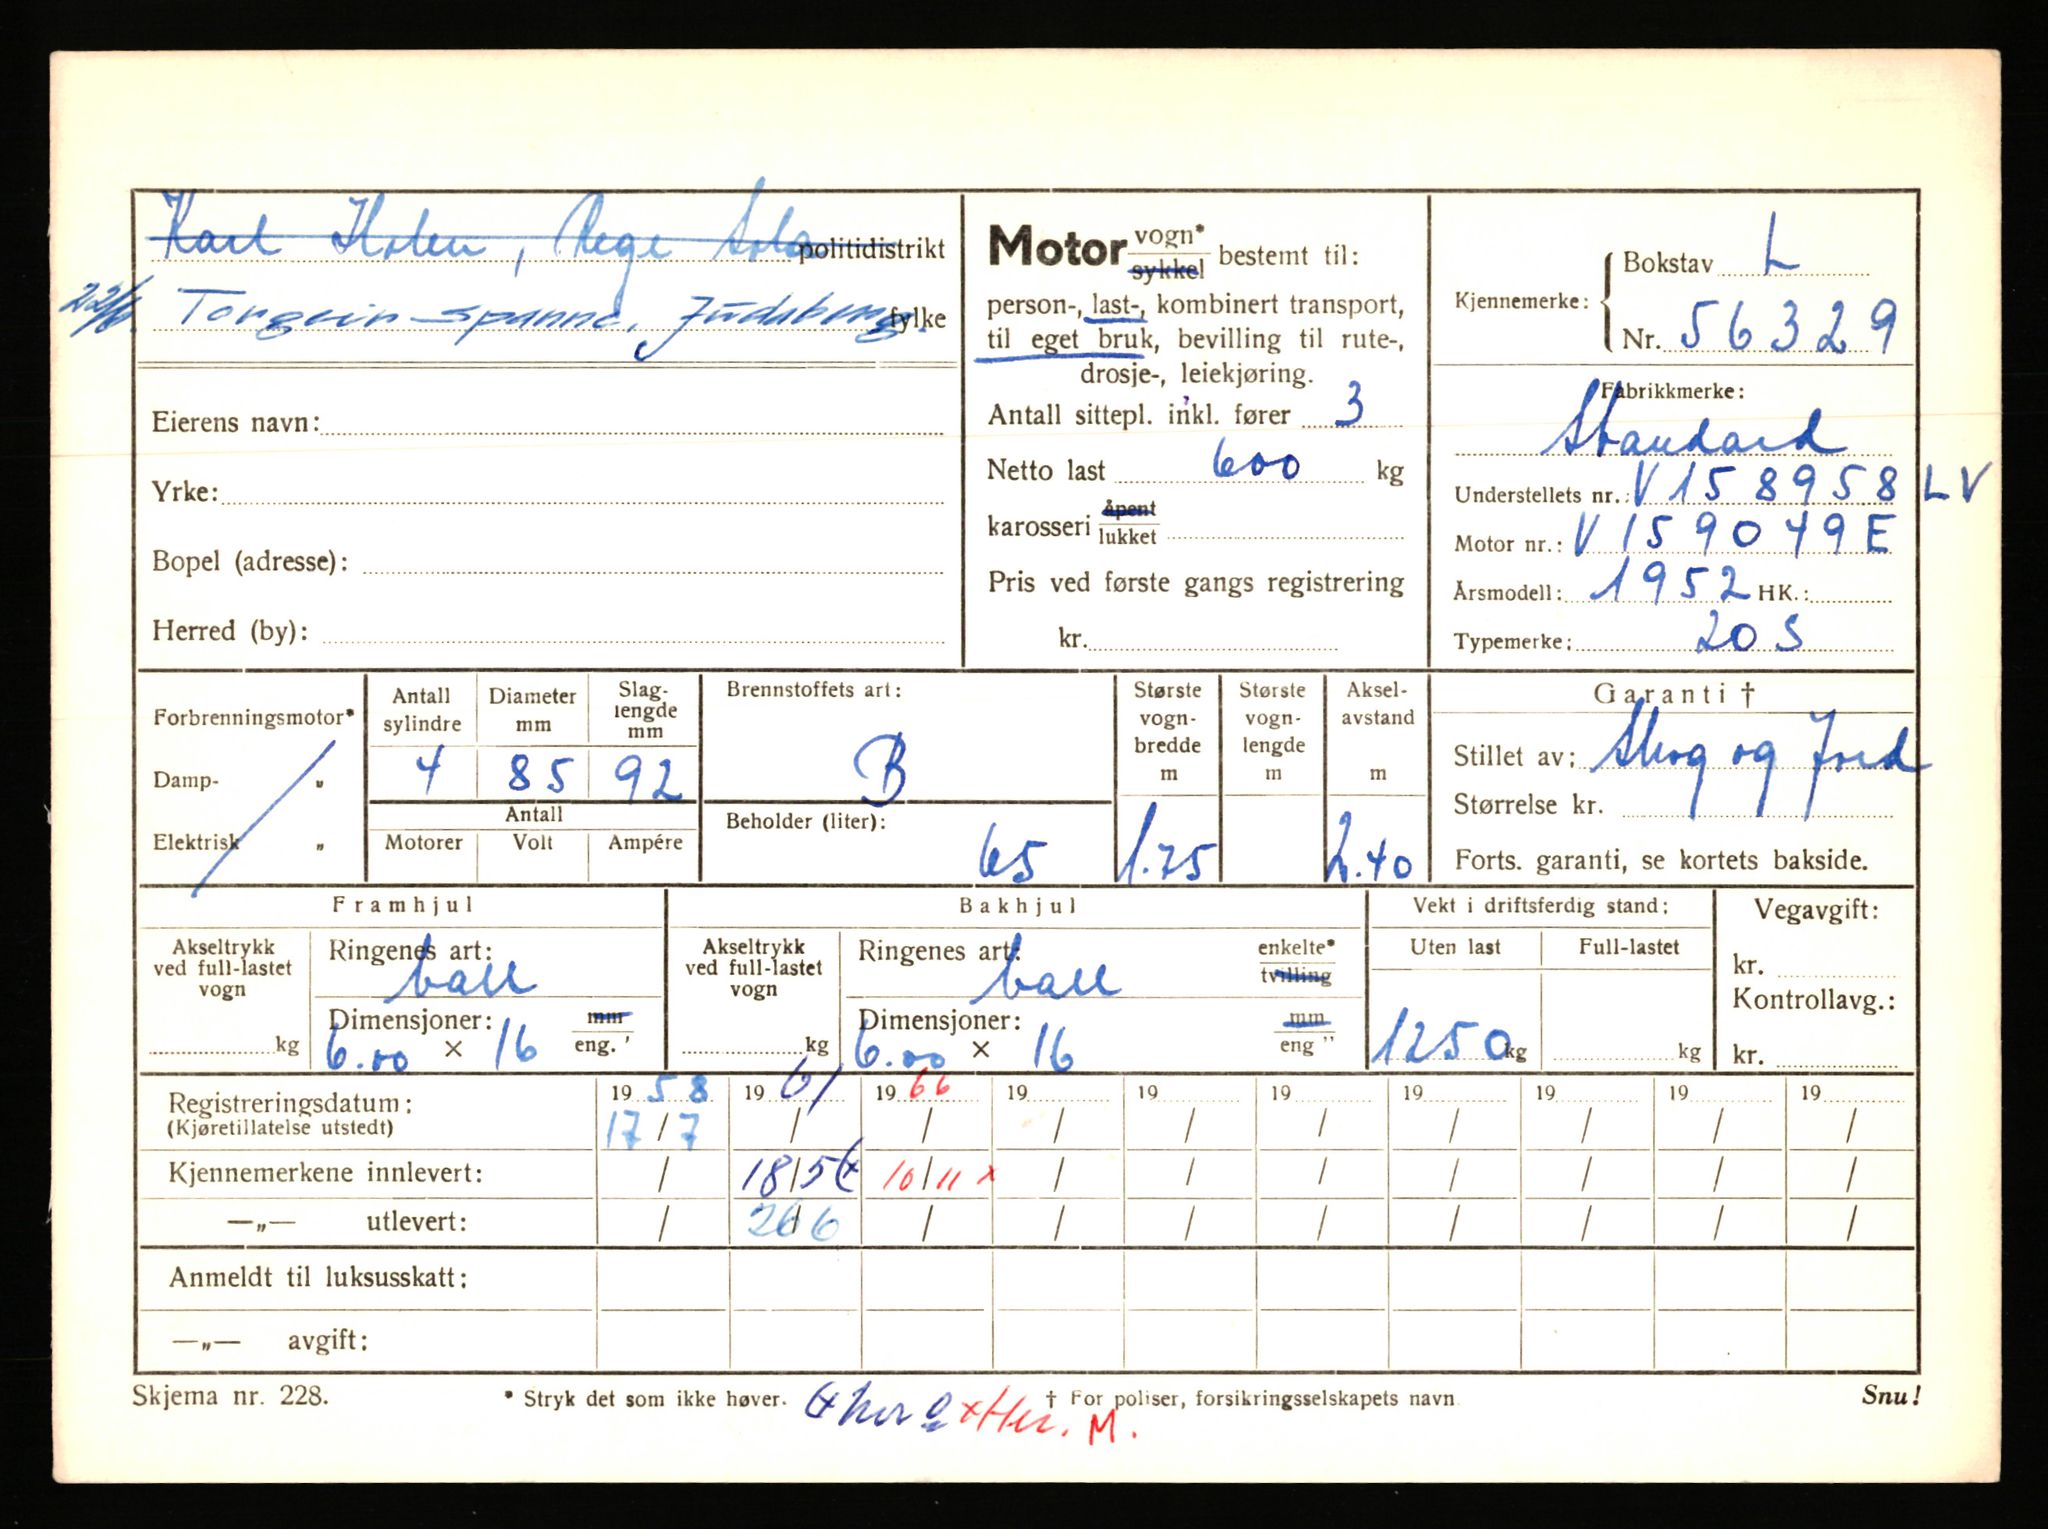 Karl Holen, Rege Sola politidistrikt
22/6. Torgeir Spanne, Judaberg. fylke
Eierens navn:
Yrke:
Bopel (adresse):
Herred (by):
Motor vogn* / sykkel bestemt til:
person-, last-, kombinert transport,
til eget bruk, bevilling til rute-,
drosje-, leiekjøring.
Antall sittepl. inkl. fører 3
Netto last 600 kg
karosseri åpent / lukket
Pris ved første gangs registrering
kr.
Kjennemerke: Bokstav L
Nr. 56329
Fabrikkmerke:
Standard
Understellets nr.: V158958 LV
Motor nr.: V159049E
Årsmodell: 1952 HK.:
Typemerke: 20 S
Forbrenningsmotor*
Damp- „
Elektrisk „
Antall sylindre Diameter mm Slag-lengde mm
4 85 92
Antall
Motorer Volt Ampére
Brennstoffets art:
B
Beholder (liter):
65
Største vogn-bredde m
1.75
Største vogn-lengde m
Aksel-avstand m
2.40
Garanti †
Stillet av: Skog og Jord
Størrelse kr.
Forts. garanti, se kortets bakside.
Framhjul
Akseltrykk ved full-lastet vogn
kg
Ringenes art:
ball
Dimensjoner: mm / eng. '
6.00 × 16
Bakhjul
Akseltrykk ved full-lastet vogn
kg
Ringenes art: enkelte* / tvilling
ball
Dimensjoner: mm / eng "
6.00 × 16
Vekt i driftsferdig stand:
Uten last Full-lastet
1250 kg kg
Vegavgift:
kr.
Kontrollavg.:
kr.
Registreringsdatum: 1958 1961 1966 19 19 19 19 19 19 19
(Kjøretillatelse utstedt) 17/7 / / / / / / / / /
Kjennemerkene innlevert: / 18/5 10/11 x / / / / / / /
—„— utlevert: / 26/6 / / / / / / / /
Anmeldt til luksusskatt:
—„— avgift:
Skjema nr. 228. * Stryk det som ikke høver. † For poliser, forsikringsselskapets navn Snu!
x Her. M.